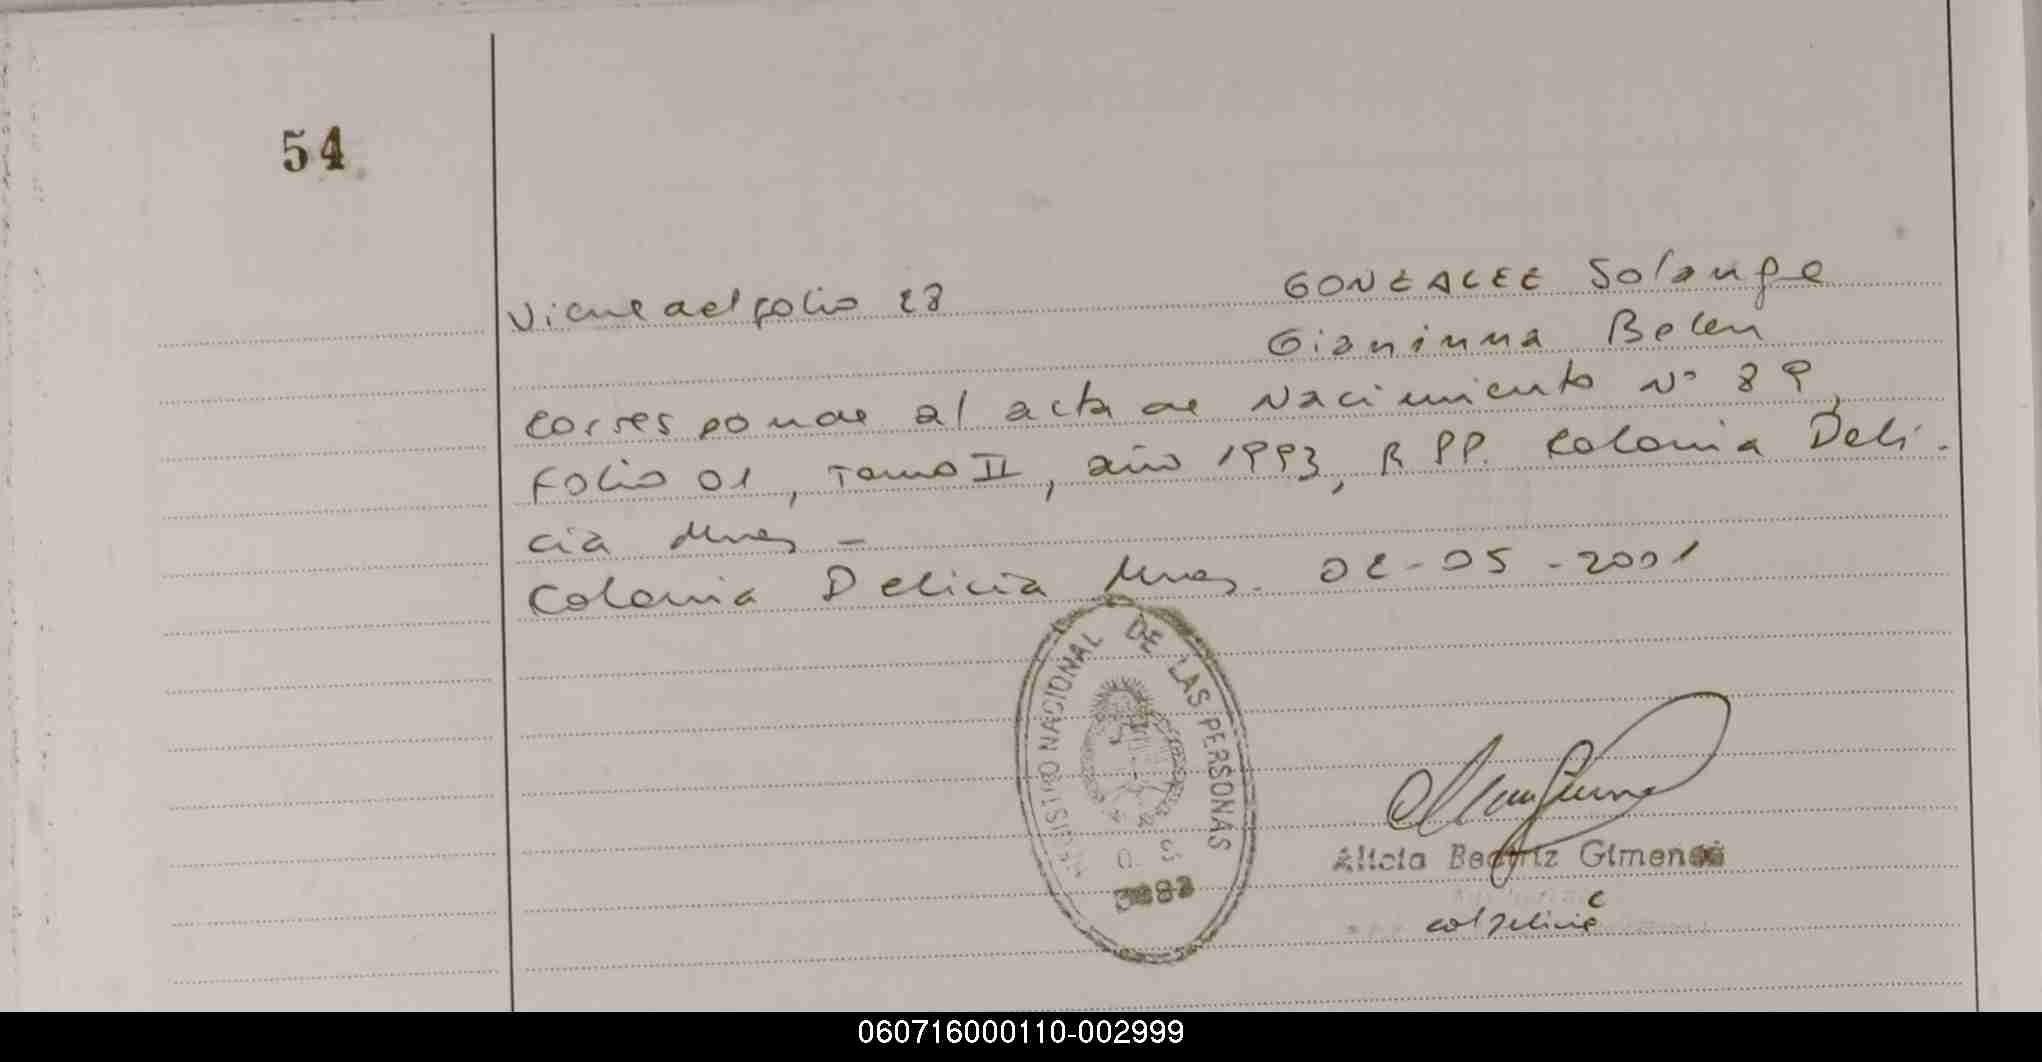 54
Viene del folio 28 GONZALEZ Solange
Gianinna Belen
Corresponde al acta de Nacimiento Nº 89,
Folio 01, Tomo II, año 1993, R PP. Colonia Deli-
cia Mnes -
Colonia Delicia Mnes. 02-05-2001
REGISTRO NACIONAL DE LAS PERSONAS
3882
Alicia Beatriz Gimenez
060716000110-002999